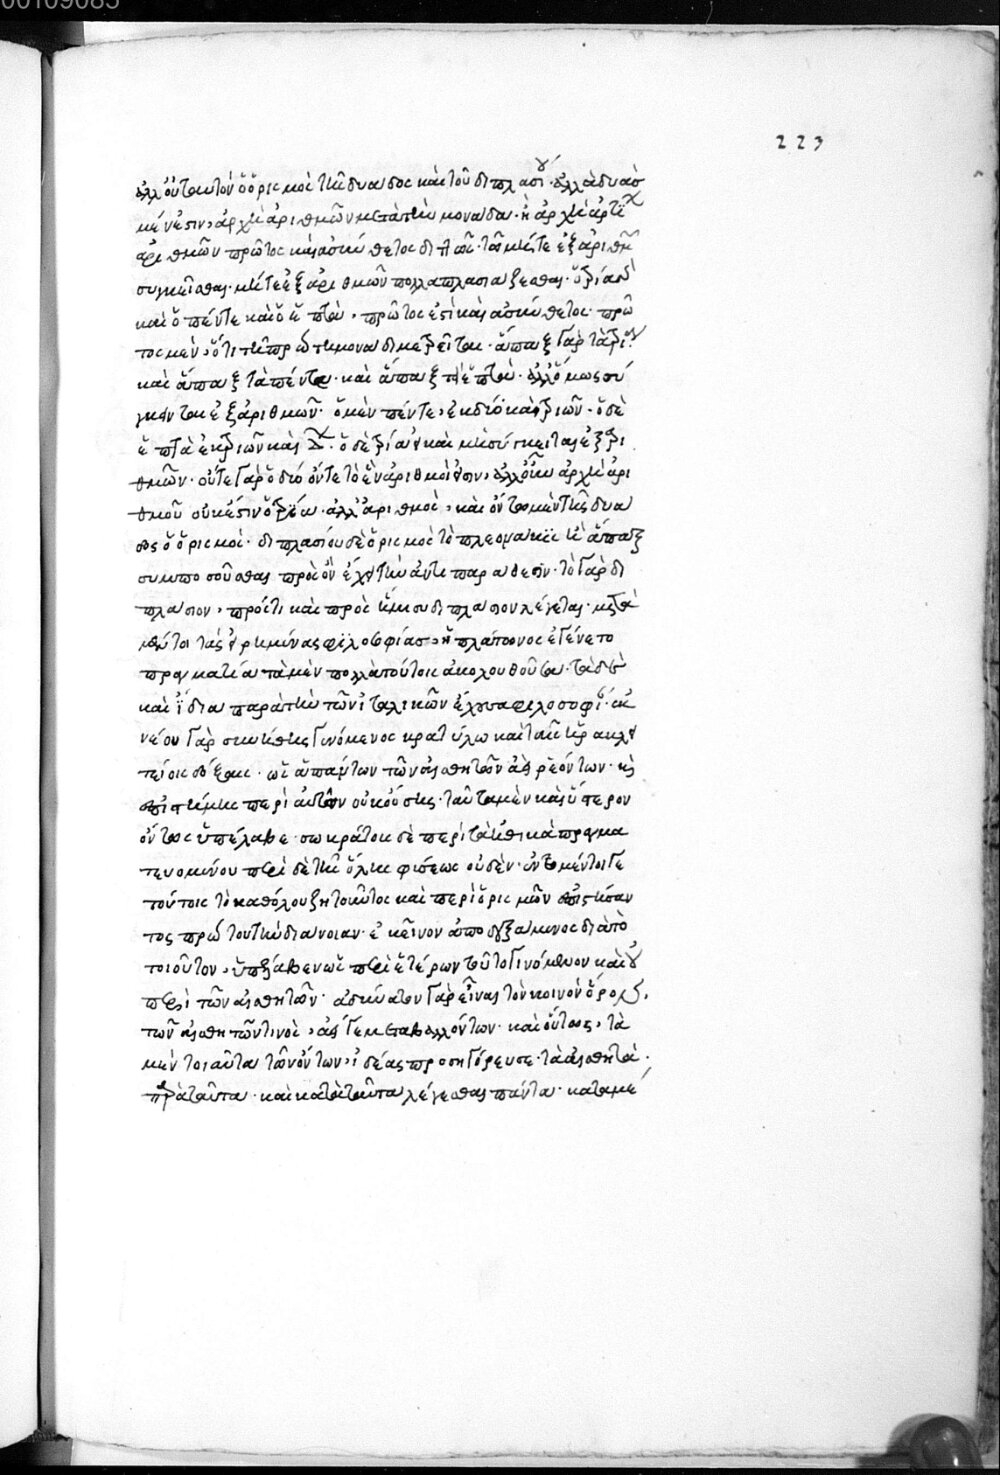 00109085
223
ἀλλ' οὐ ταυτὸν ὁ ὁρισμὸς τῆς δυάδος καὶ τοῦ διπλασίου· ἀλλὰ δυὰς
μέν ἐστιν, ἀρχὴ ἀριθμῶν μετὰ τὴν μονάδα· ἢ ἀρχὴ ἀρτίων
ἀριθμῶν πρῶτος καὶ ἀσύνθετος διπλῶς· τῶ μήτε ἐξ ἀριθμῶν
συγκεῖσθαι· μήτε ἐξ ἀριθμῶν πολλαπλασιάζεσθαι· ὁ τρία
καὶ ὁ πέντε καὶ ὁ ἑπτὰ, πρῶτος ἐστὶ καὶ ἀσύνθετος· πρῶ
τος μὲν, ὅτι τῆ πρώτη μονάδι μετρεῖται· ἅπαξ γὰρ τὰ τρία
καὶ ἅπαξ τὰ πέντε· καὶ ἅπαξ τὰ ἑπτὰ· ἀλλ' ὅμως σύ
γκεινται ἐξ ἀριθμῶν· ὁ μὲν πέντε, ἐκ δύο καὶ τριῶν· ὁ δὲ
ἑπτὰ ἐκ τριῶν καὶ δ· ὁ δὲ τρία οὐ καὶ μὴ σύγκειται ἐξ ἀρι
θμῶν· οὔτε γὰρ ὁ δύο οὔτε τὸ ἓν ἀριθμοί εἰσιν, ἀλλ' οὖν ἀρχὴ ἀρι
θμοῦ οὐκ ἔστιν ὁ τρία· ἀλλ' ἀριθμὸς, καὶ οὗτος μὲν τῆς δυά
δος ὁ ὁρισμὸς· διπλασίου δὲ ὁρισμὸς τὸ πλεονάκις ἢ ἅπαξ
πρὸς ὃν ἔχει τὴν ἀντιπαράθεσιν· τὸ γὰρ δι
πλάσιον, πρός τι καὶ πρὸς ἥμισυ διπλάσιον λέγεται· μετὰ
μέντοι τὰς εἰρημένας φιλοσοφίας, ἡ πλάτωνος ἐγένετο
πραγματεία τὰ μὲν πολλὰ τούτοις ἀκολουθοῦσα· τὰ δὲ
καὶ ἴδια παρὰ τὴν τῶν ἰταλικῶν ἔχουσα φιλοσοφίαν· ἐκ
νέου γὰρ συνήθης γινόμενος κρατύλω καὶ ταῖς ἡρακλει
τείοις δόξαις· ὡς ἁπάντων τῶν αἰσθητῶν ἀεὶ ῥεόντων· καὶ
ἐπιστήμης περὶ αὐτῶν οὐκ οὔσης· ταῦτα μὲν καὶ ὕστερον
οὕτως ὑπέλαβε· σωκράτους δὲ περὶ τὰ ἠθικὰ πραγμα
τευομένου περὶ δὲ τῆς ὅλης φύσεως οὐδὲν· ἐν μέντοι γε
τούτοις τὸ καθόλου ζητοῦντος καὶ περὶ ὁρισμῶν ἐπιστήσαν
τος πρώτου τὴν διάνοιαν· ἐκεῖνον ἀποδεξάμενος διὰ τὸ
τοιοῦτον, ὑπέλαβεν ὡς περὶ ἑτέρων τοῦτο γινόμενον καὶ οὐ
περὶ τῶν αἰσθητῶν· ἀδύνατον γὰρ εἶναι τὸν κοινὸν ὅρον
τῶν αἰσθητῶν τινὸς, ἀεί γε μεταβαλλόντων· καὶ οὗτος, τὰ
μὲν τοιαῦτα τῶν ὄντων, ἰδέας προσηγόρευσε· τὰ αἰσθητὰ·
παρὰ ταῦτα· καὶ κατὰ ταῦτα λέγεσθαι πάντα· κατὰ μέ